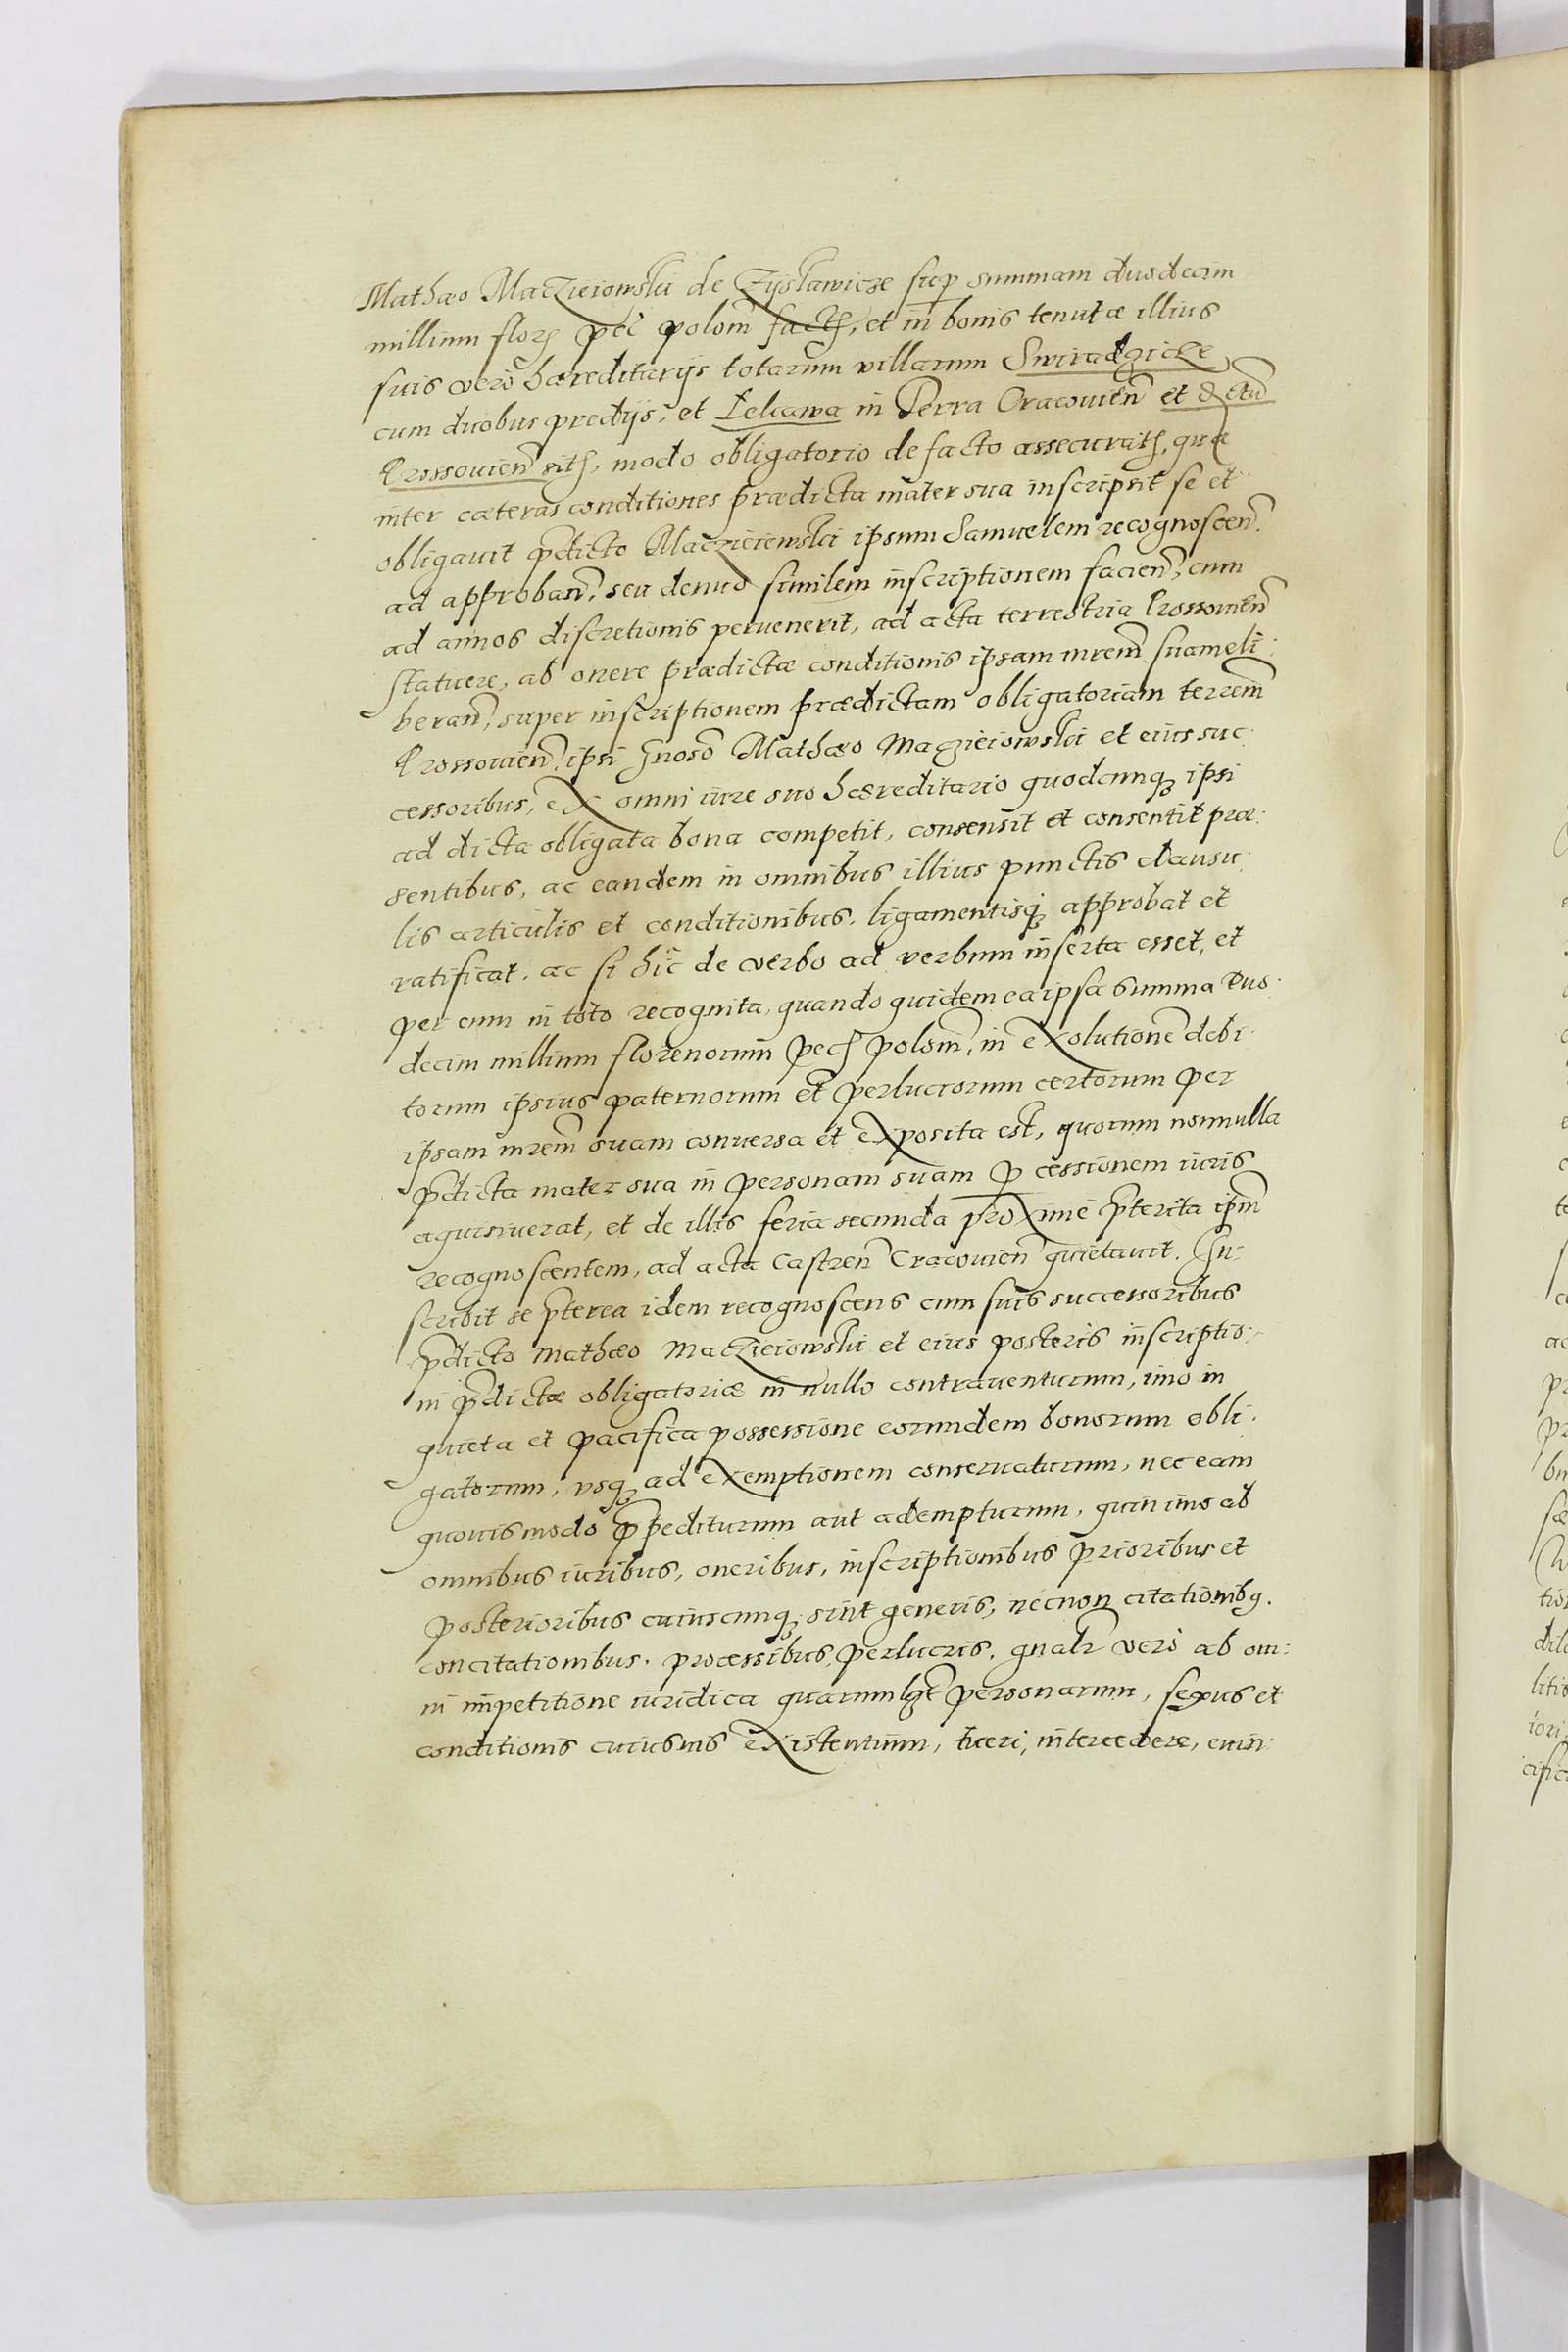 Mathæo Maczieiowski de Zyslawicze sup summam duodecim
millium flor pec polon fact, et in bonis tenutæ illius
suis vero hæreditarijs totarum villarum Swiradzicze
cum duobus predijs, et Lekawa in Terra Cracouien et
Prossouien sit, modo obligatorio de facto assecurat, quæ
inter cæteras conditiones prædicta mater sua inscripsit se et
obligauit pdicto Maczieiewski ipsum Samuelem recognoscen.
ad approban, seu denuo similem inscriptionem facien, cum
ad annos discretionis peruenerit, ad acta terrestria Prossouien
statuere, ab onere prædictæ conditionis ipsam mrem suam eli:
beran, super inscriptionem prædictam obligatoriam terrem
Prossouien, ipsi Gnoso Mathæo Maczieiowski et eius suc:
cessoribus, ex omni iure suo hæreditario quodcunq ipsi
ad dicta obligata bona competit, consensit et consentit præ:
sentibus, ac eandem in omnibus illius punctis clausu:
lis articulis et conditionibus, ligamentisq approbat et
ratificat, ac si hic de verbo ad verbum inserta esset, et
per eum in toto recognita, quando quidem ea ipsa summa duo:
decim millium florenorum pec polon, in exolutione debi:
torum ipsius paternorum et perlucrorum certorum per
ipsam mrem suam conuersa et exposita est, quorum nonnulla
pdicta mater sua in personam suam p cessionem iuris
aquisiuerat, et de illis feria secunda proxime pterita ipm
recognoscentem, ad acta Castren Cracouien quietauit. In-
scribit se pterea idem recognoscens cum suis successoribus
pdicto Mathæo Maczieiowski et eius posteris inscriptio:
ni pdictæ obligatoriæ in nullo contrauenturum, imo in
quieta et pacifica possessione eorundem bonorum obli:
gatorum, vsq ad exemptionem conseruaturum, nec eam
quouismodo ppediturum aut adempturum, quin imo ab
omnibus iuribus, oneribus, inscriptionibus prioribus et
posterioribus cuiuscunq sint generis, necnon citationib9.
concitationibus. processibus, perlucris, gnalr vero ab om:
ni impetitione iuridica quarumlbet personarum, sexus et
conditionis cuiusuis existentium, tueri, intercedere, euin: